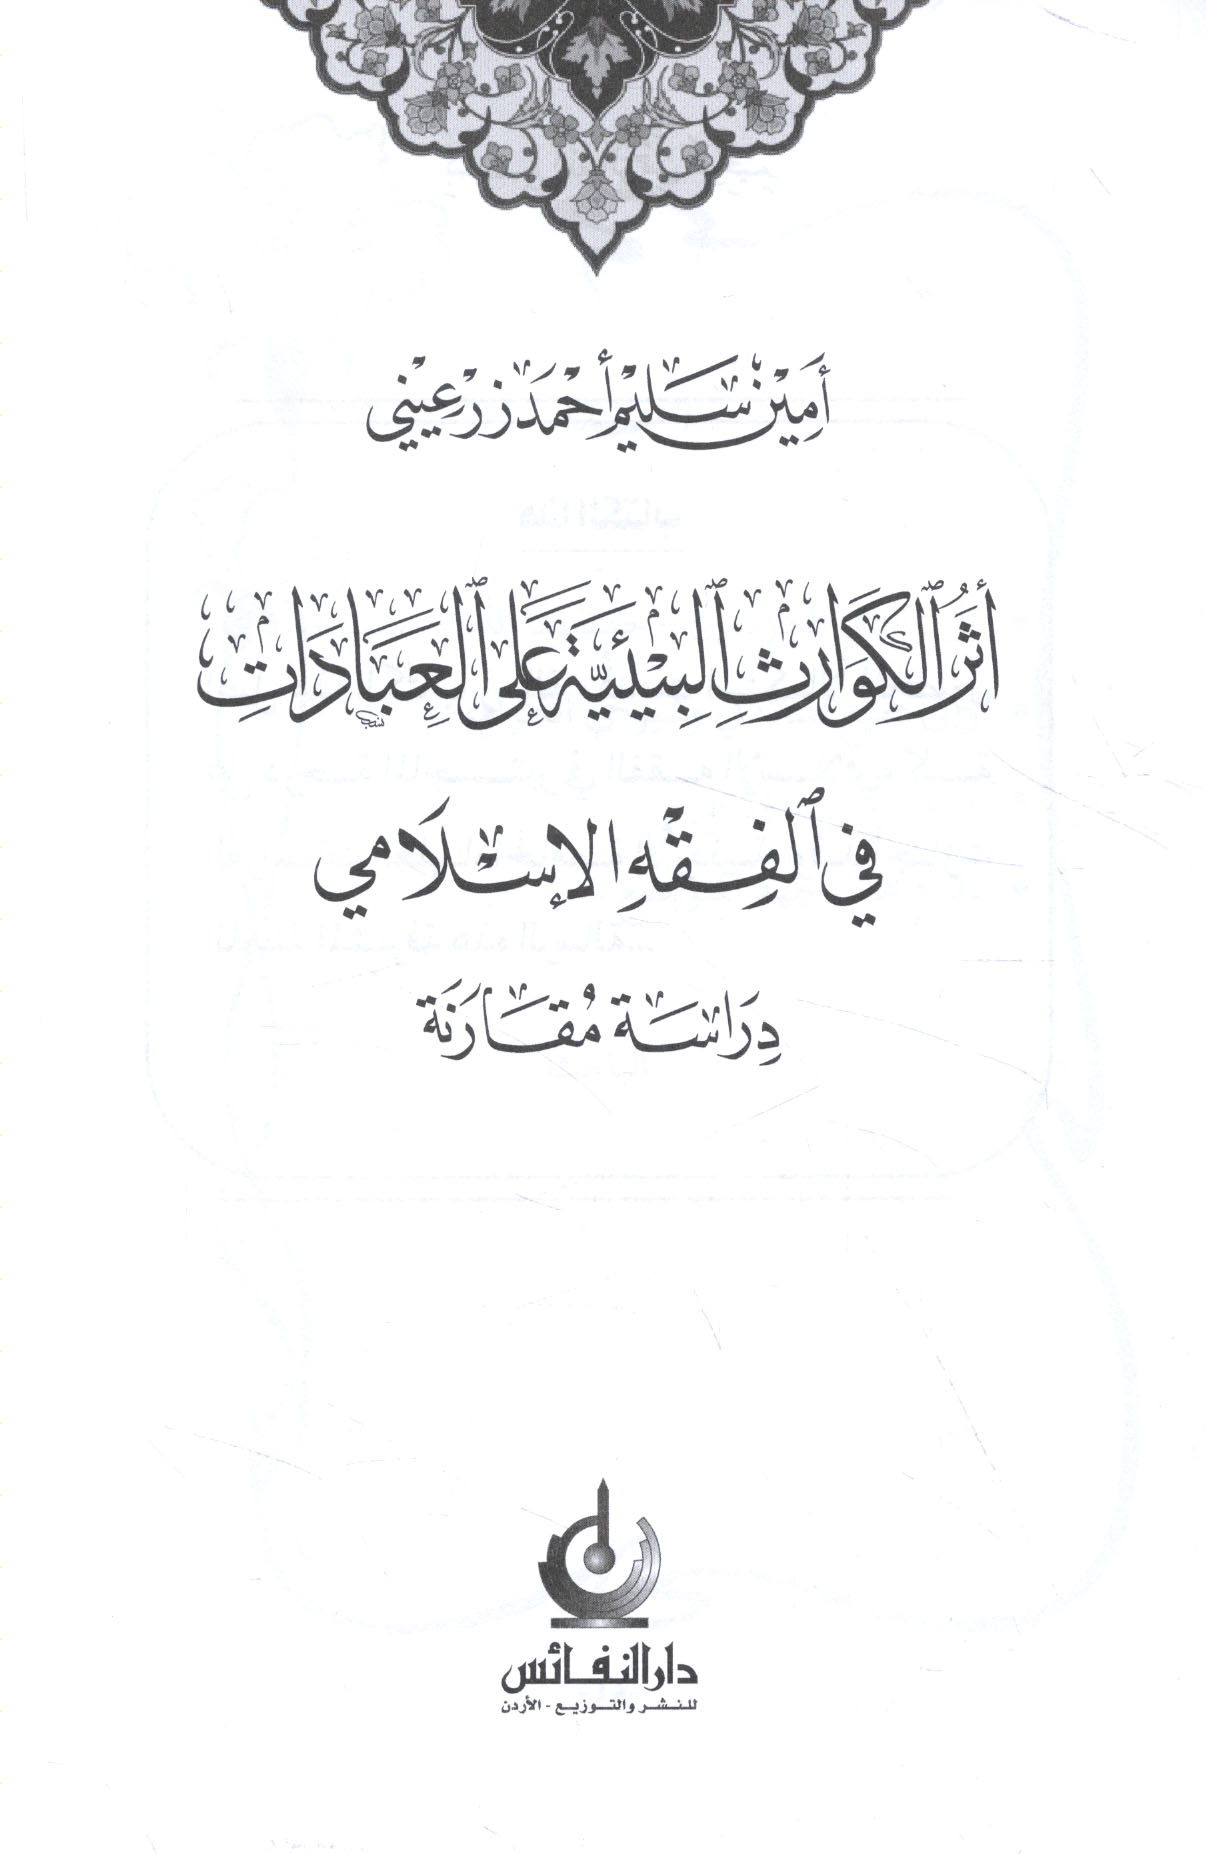 أمين سليم أحمد زرعيني
أثر الكوارث البيئية على العبادات
في الفقه الإسلامي
دراسة مقارنة
دار النفائس
للنشر والتوزيع - الأردن